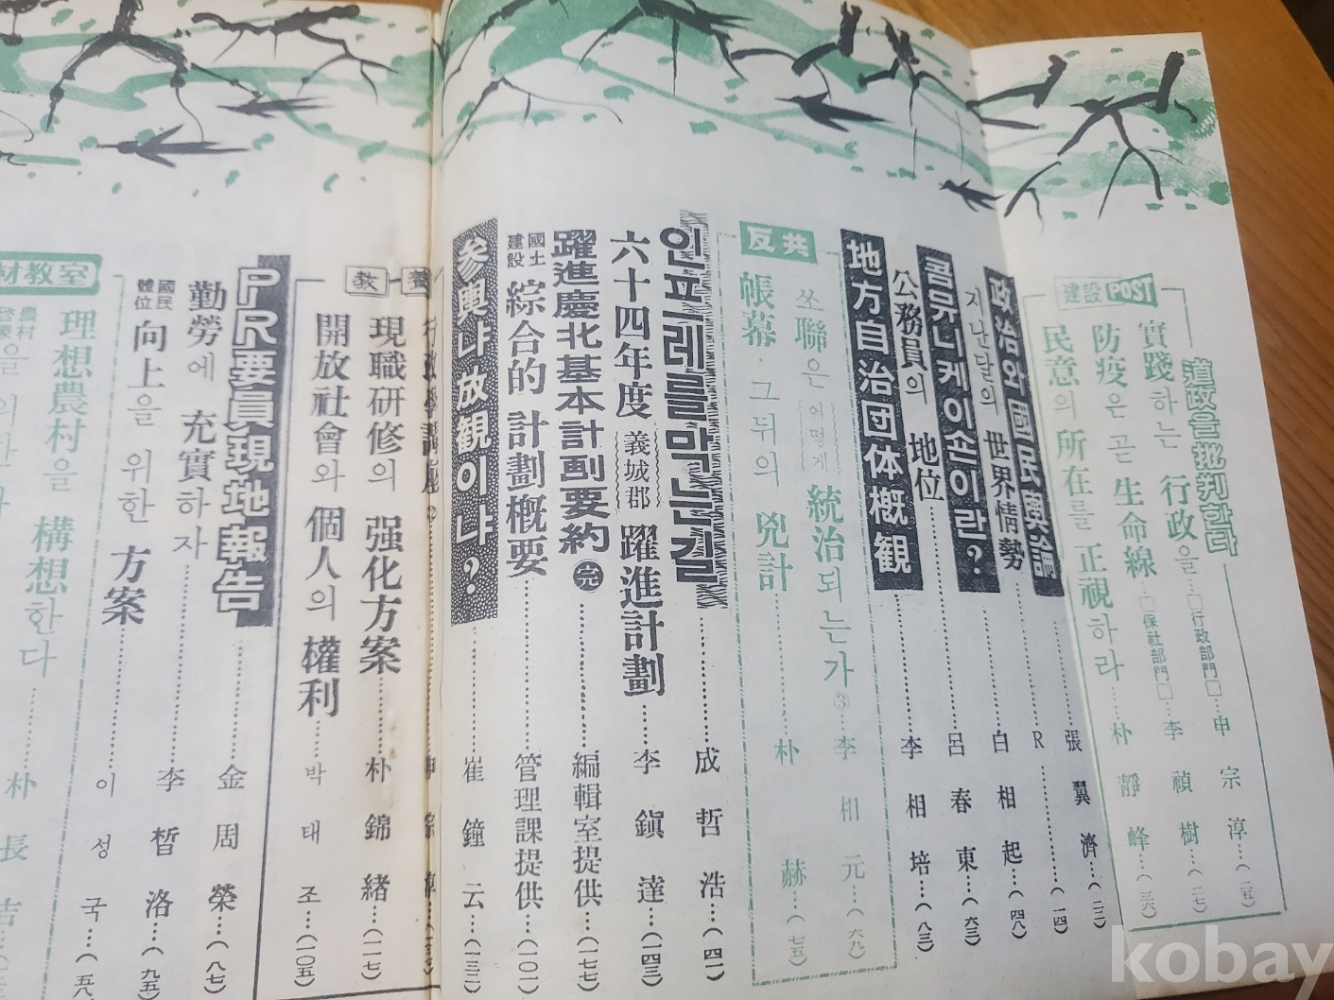 道政을批判한다
實踐하는 行政을…□行政部門□…申宗淳…(二五)
建設POST
防疫은 곧 生命線…□保社部門□…李禎樹…(二七)
民意의 所在를 正視하라…朴靜峰…(三六)
政治와 國民輿論…張翼濟…(二二)
지난달의 世界情勢…R…(一四)
콤뮤니케이숀이란?…白相起…(四八)
公務員의 地位…呂春東…(六三)
地方自治団体概観…李相培…(八三)
反共
쏘聯은 어떻게 統治되는가③…李相元…(六九)
帳幕·그뒤의 兇計…朴赫…(七五)
인프레를막는길…成哲浩…(四一)
六十四年度 義城郡 躍進計劃…李鎭達…(一四三)
躍進慶北基本計劃要約 完…編輯室提供…(一七七)
國土建設 綜合的 計劃槪要…管理課提供…(一〇一)
參輿냐 放観이냐?…崔鐘云…(一三一)
教養
現職研修의 强化方案…朴錦緖…(一一七)
開放社會와 個人의 權利…박태조…(一〇五)
PR要員現地報告…金周榮…(八七)
勤勞에 充實하자…李晳洛…(九五)
國民體位 向上을 위한 方案…이성국…(五八
材教室
理想農村을 構想한다…朴長吉
農村啓蒙을